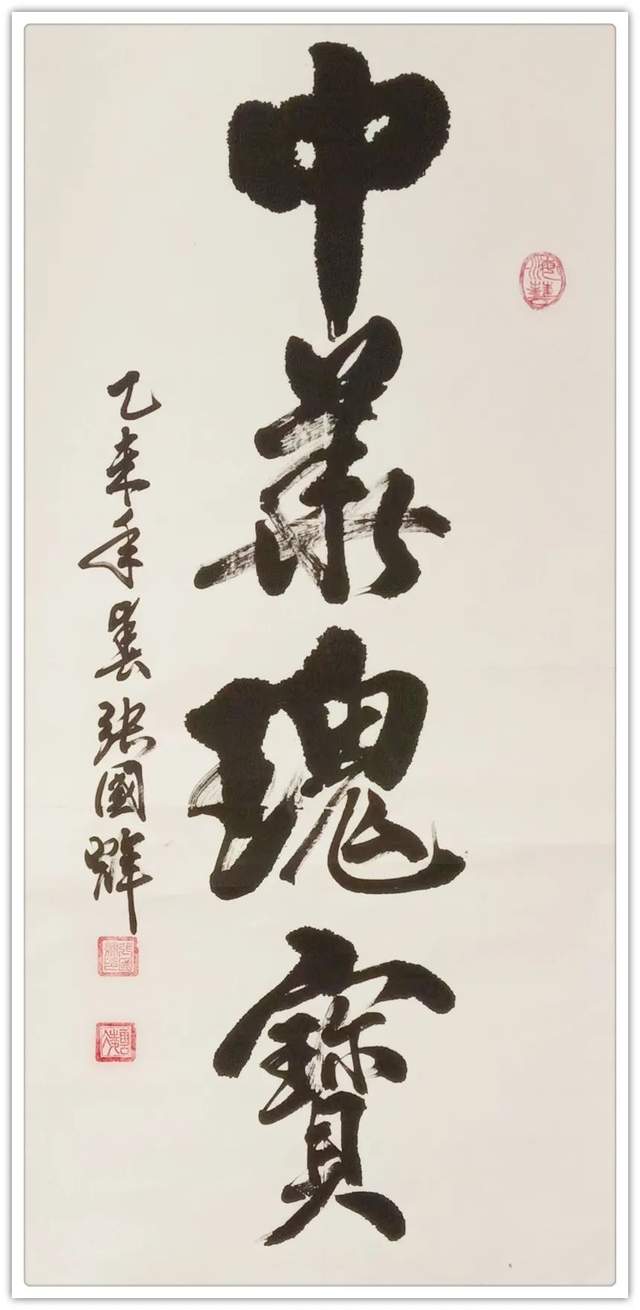 中華瑰寶
乙未年春張國輝